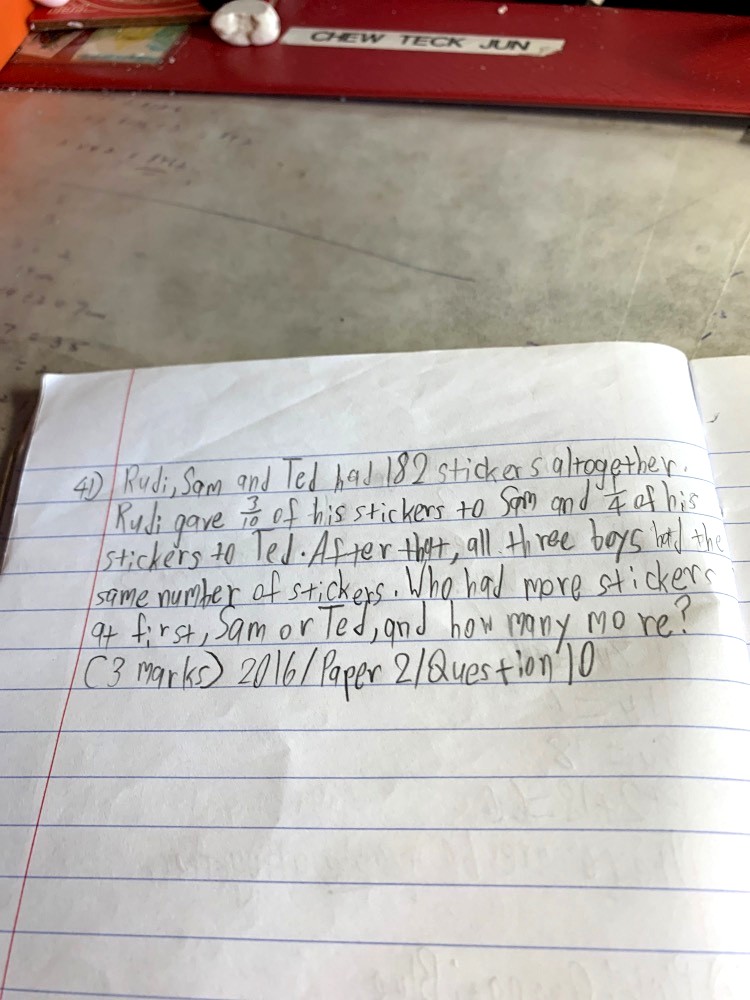 CHEW TECK JUN
41) Rudi, Sam and Ted had 182 stickers altogether.
Rudi gave 3/10 of his stickers to Sam and 1/4 of his
stickers to Ted. After that, all three boys had the
same number of stickers. Who had more stickers
at first, Sam or Ted, and how many more?
(3 marks) 2016/Paper 2/Question 10